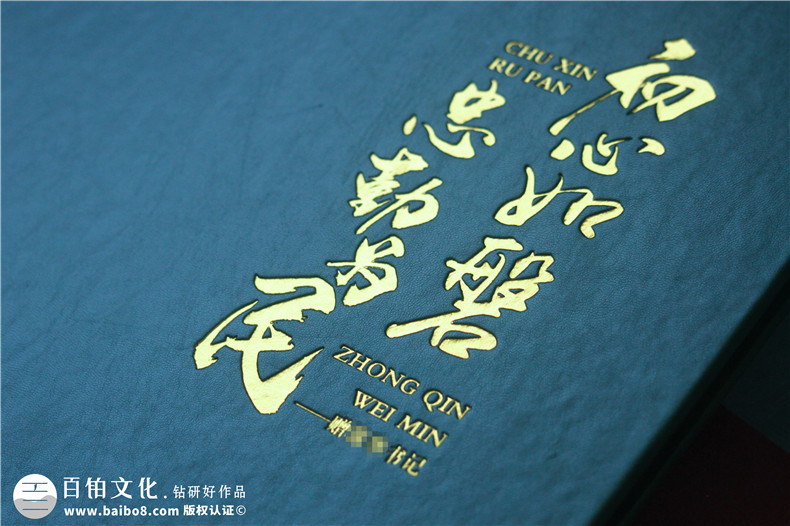 初心如磐
CHU XIN
RU PAN
忠勤为民
ZHONG QIN
WEI MIN
——赠
书记
百铂文化.钻研好作品
www.baibo8.com 版权认证©